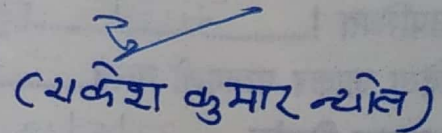 (राकेश कुमार न्योल)